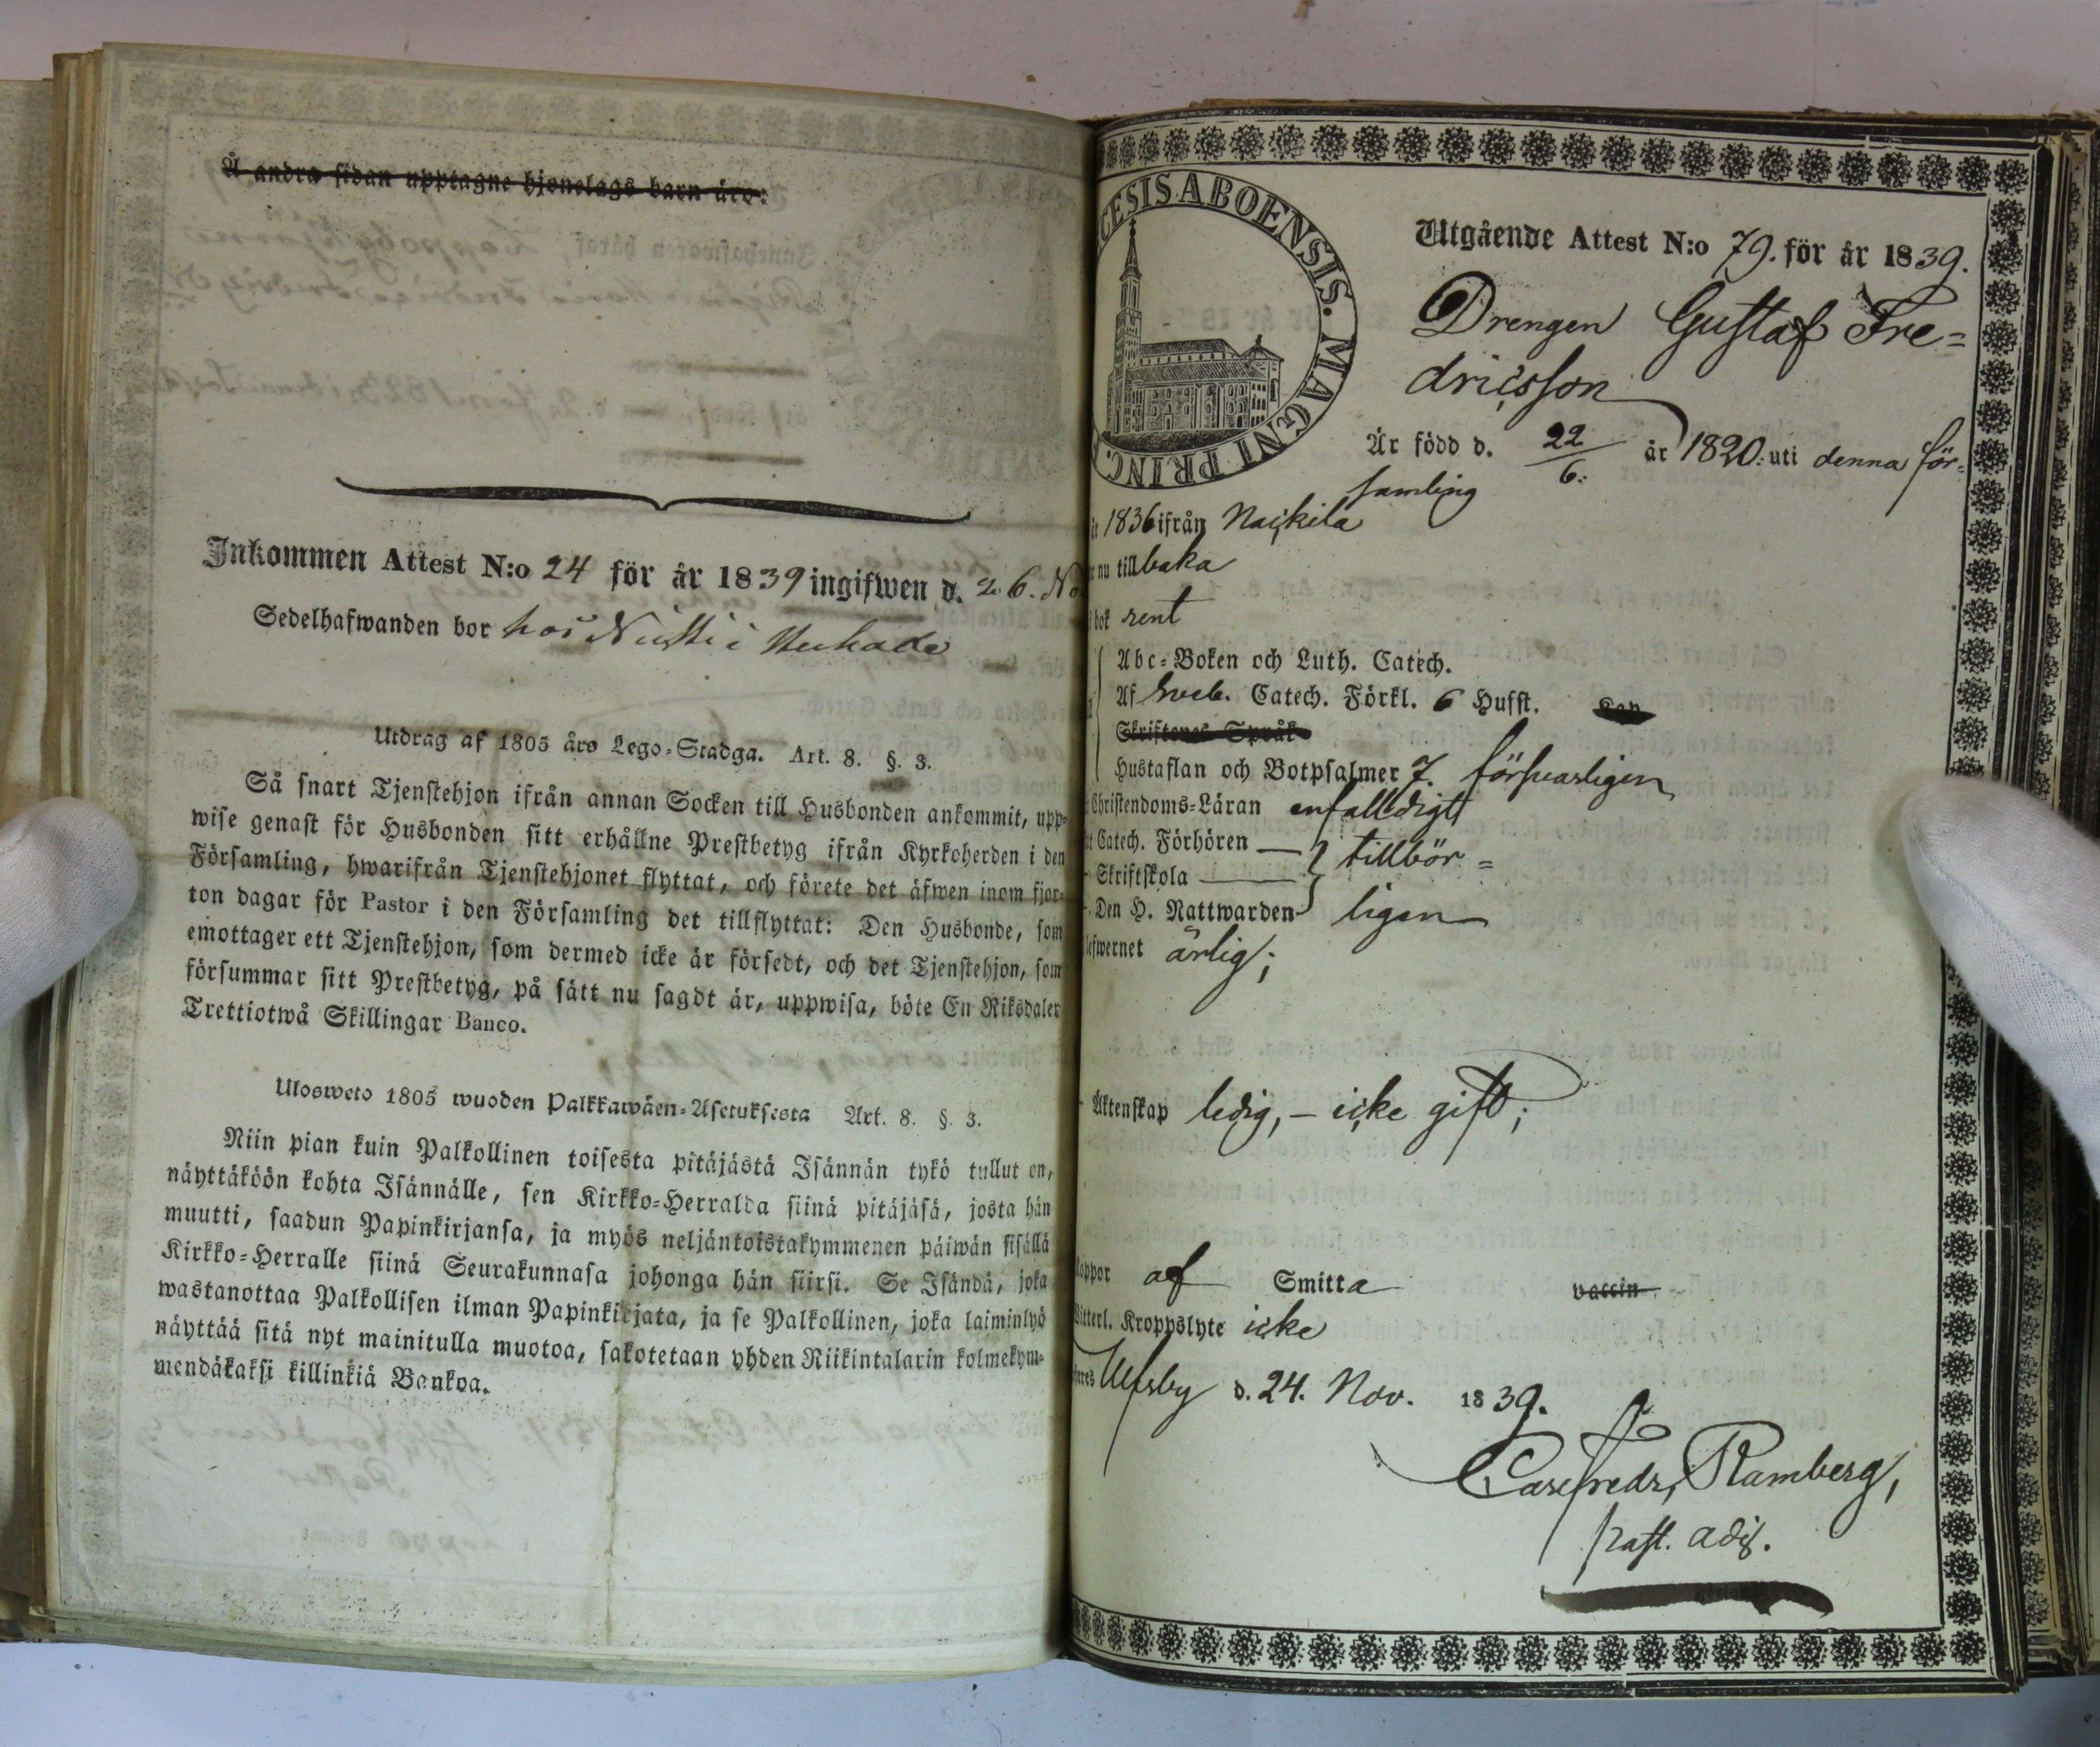 Å andra sidan upptagne hjonelags barn äro:
Inkommen Attest N:o 24 för år 1839 ingifwen d. 26. No
Sedelhafwanden bor hos i
Utdrag af 1805 års Lego-Stadga. Art. 8. §. 3.
Så snart Tjenstehjon ifrån annan Socken till Husbonden ankommit, upp-
wise genast för Husbonden sitt erhållne Prestbetyg ifrån Kyrkoherden i den
Församling, hwarifrån Tjenstehjonet flyttat, och förete det äfwen inom fjor-
ton dagar för Pastor i den Församling det tillflyttat: Den Husbonde, som
emottager ett Tjenstehjon, som dermed icke är försedt, och det Tjenstehjon, som
försummar sitt Prestbetyg, på sätt nu sagdt är, uppwisa, böte En Riksdaler
Trettiotwå Skillingar Banco.
Ulosweto 1805 wuoden Palkkawäen-Asetuksesta Art. 8. §. 3.
Niin pian kuin Palkollinen toisesta pitäjästä Isännän tykö tullut on,
näyttäköön kohta Isännälle, sen Kirkko-Herralda siinä pitäjäsä, josta hän
muutti, saadun Papinkirjansa, ja myös neljäntoistakymmenen päiwän sisällä
Kirkko-Herralle siinä Seurakunnasa johonga hän siirsi. Se Isändä, joka
wastanottaa Palkollisen ilman Papinkirjata, ja se Palkollinen, joka laiminlyö
näyttää sitä nyt mainitulla muotoa, sakotetaan yhden Riikintalarin kolmekym-
mendäkaksi killinkiä Bankoa.
CESIS ABOENSIS. MAGNI PRINC.
Utgående Attest N:o 79. för år 1839.
Drengen Gustaf Fre=
dricsson
Är född d. 22/6. år 1820. uti denna för=
samling
1836 ifrån Nackila
nu tillbaka
bok rent
Abc-Boken och Luth. Catech.
Af Sveb. Catech. Förkl. 6 Hufst. Kap
Skriftenes Språk
Hustaflan och Botpsalmer 7. försvarligen
Christendoms-Läran enfalldigt
Catech. Förhören } tillbör=
Skriftskola
Den H. Nattwarden ligen
efwernet ärlig;
Äktenskap ledig, – icke gift;
koppor af Smitta vaccin
Witterl. Kroppslyte icke
Ulfsby d. 24. Nov. 1839.
Carl Fredr. Ramberg,
past. adj.